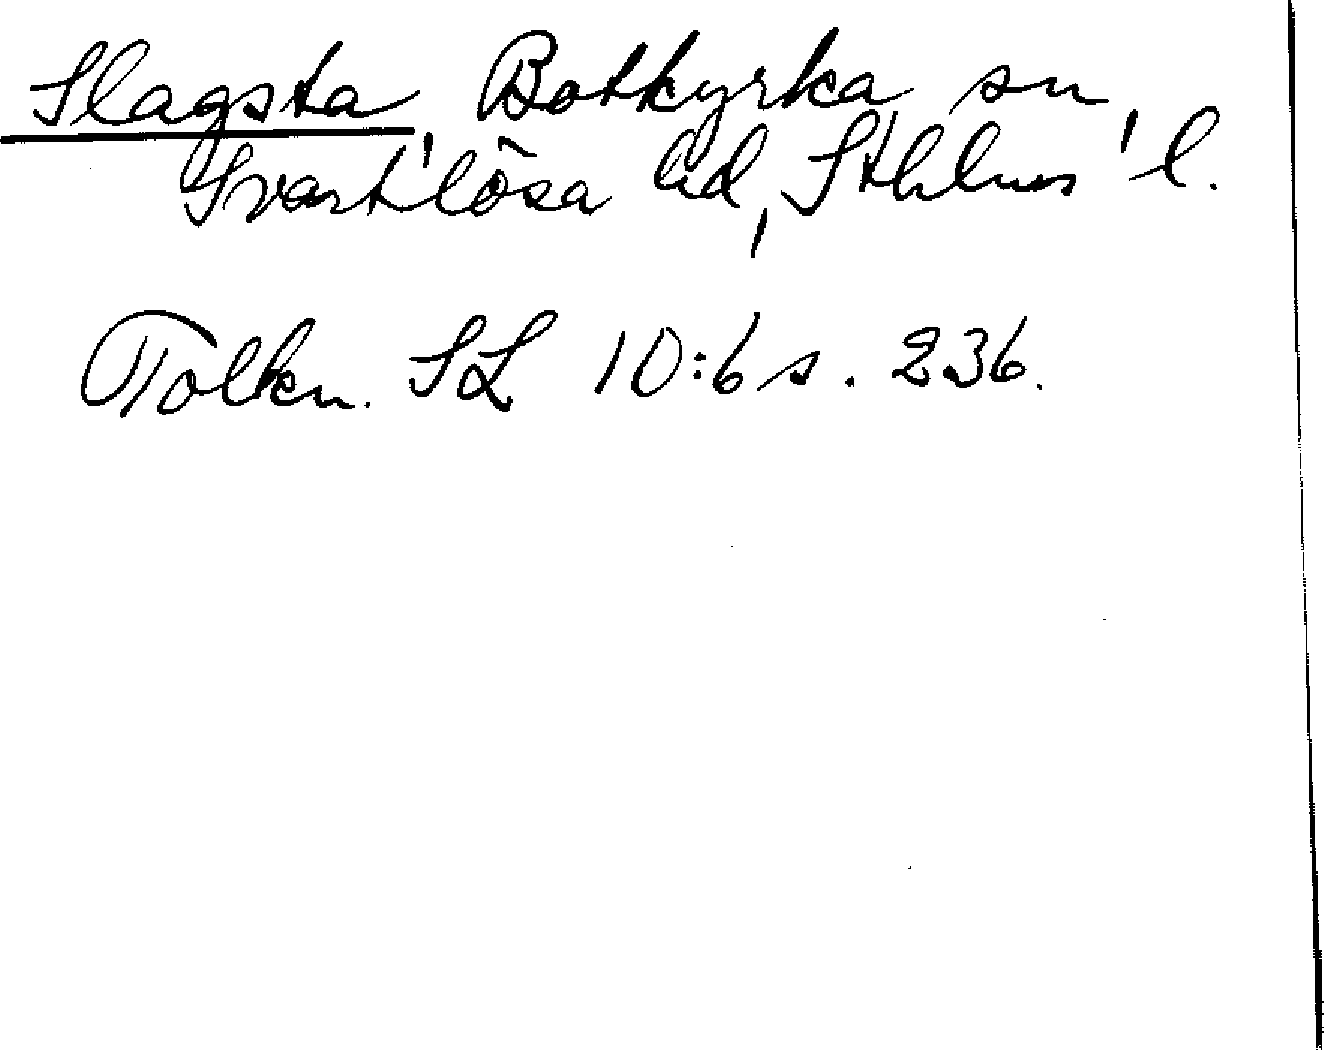 Slagsta, Botkyrka sn,
Svartlösa hd, Sthlms l.
Tolkn. SL 10:6 s. 236.